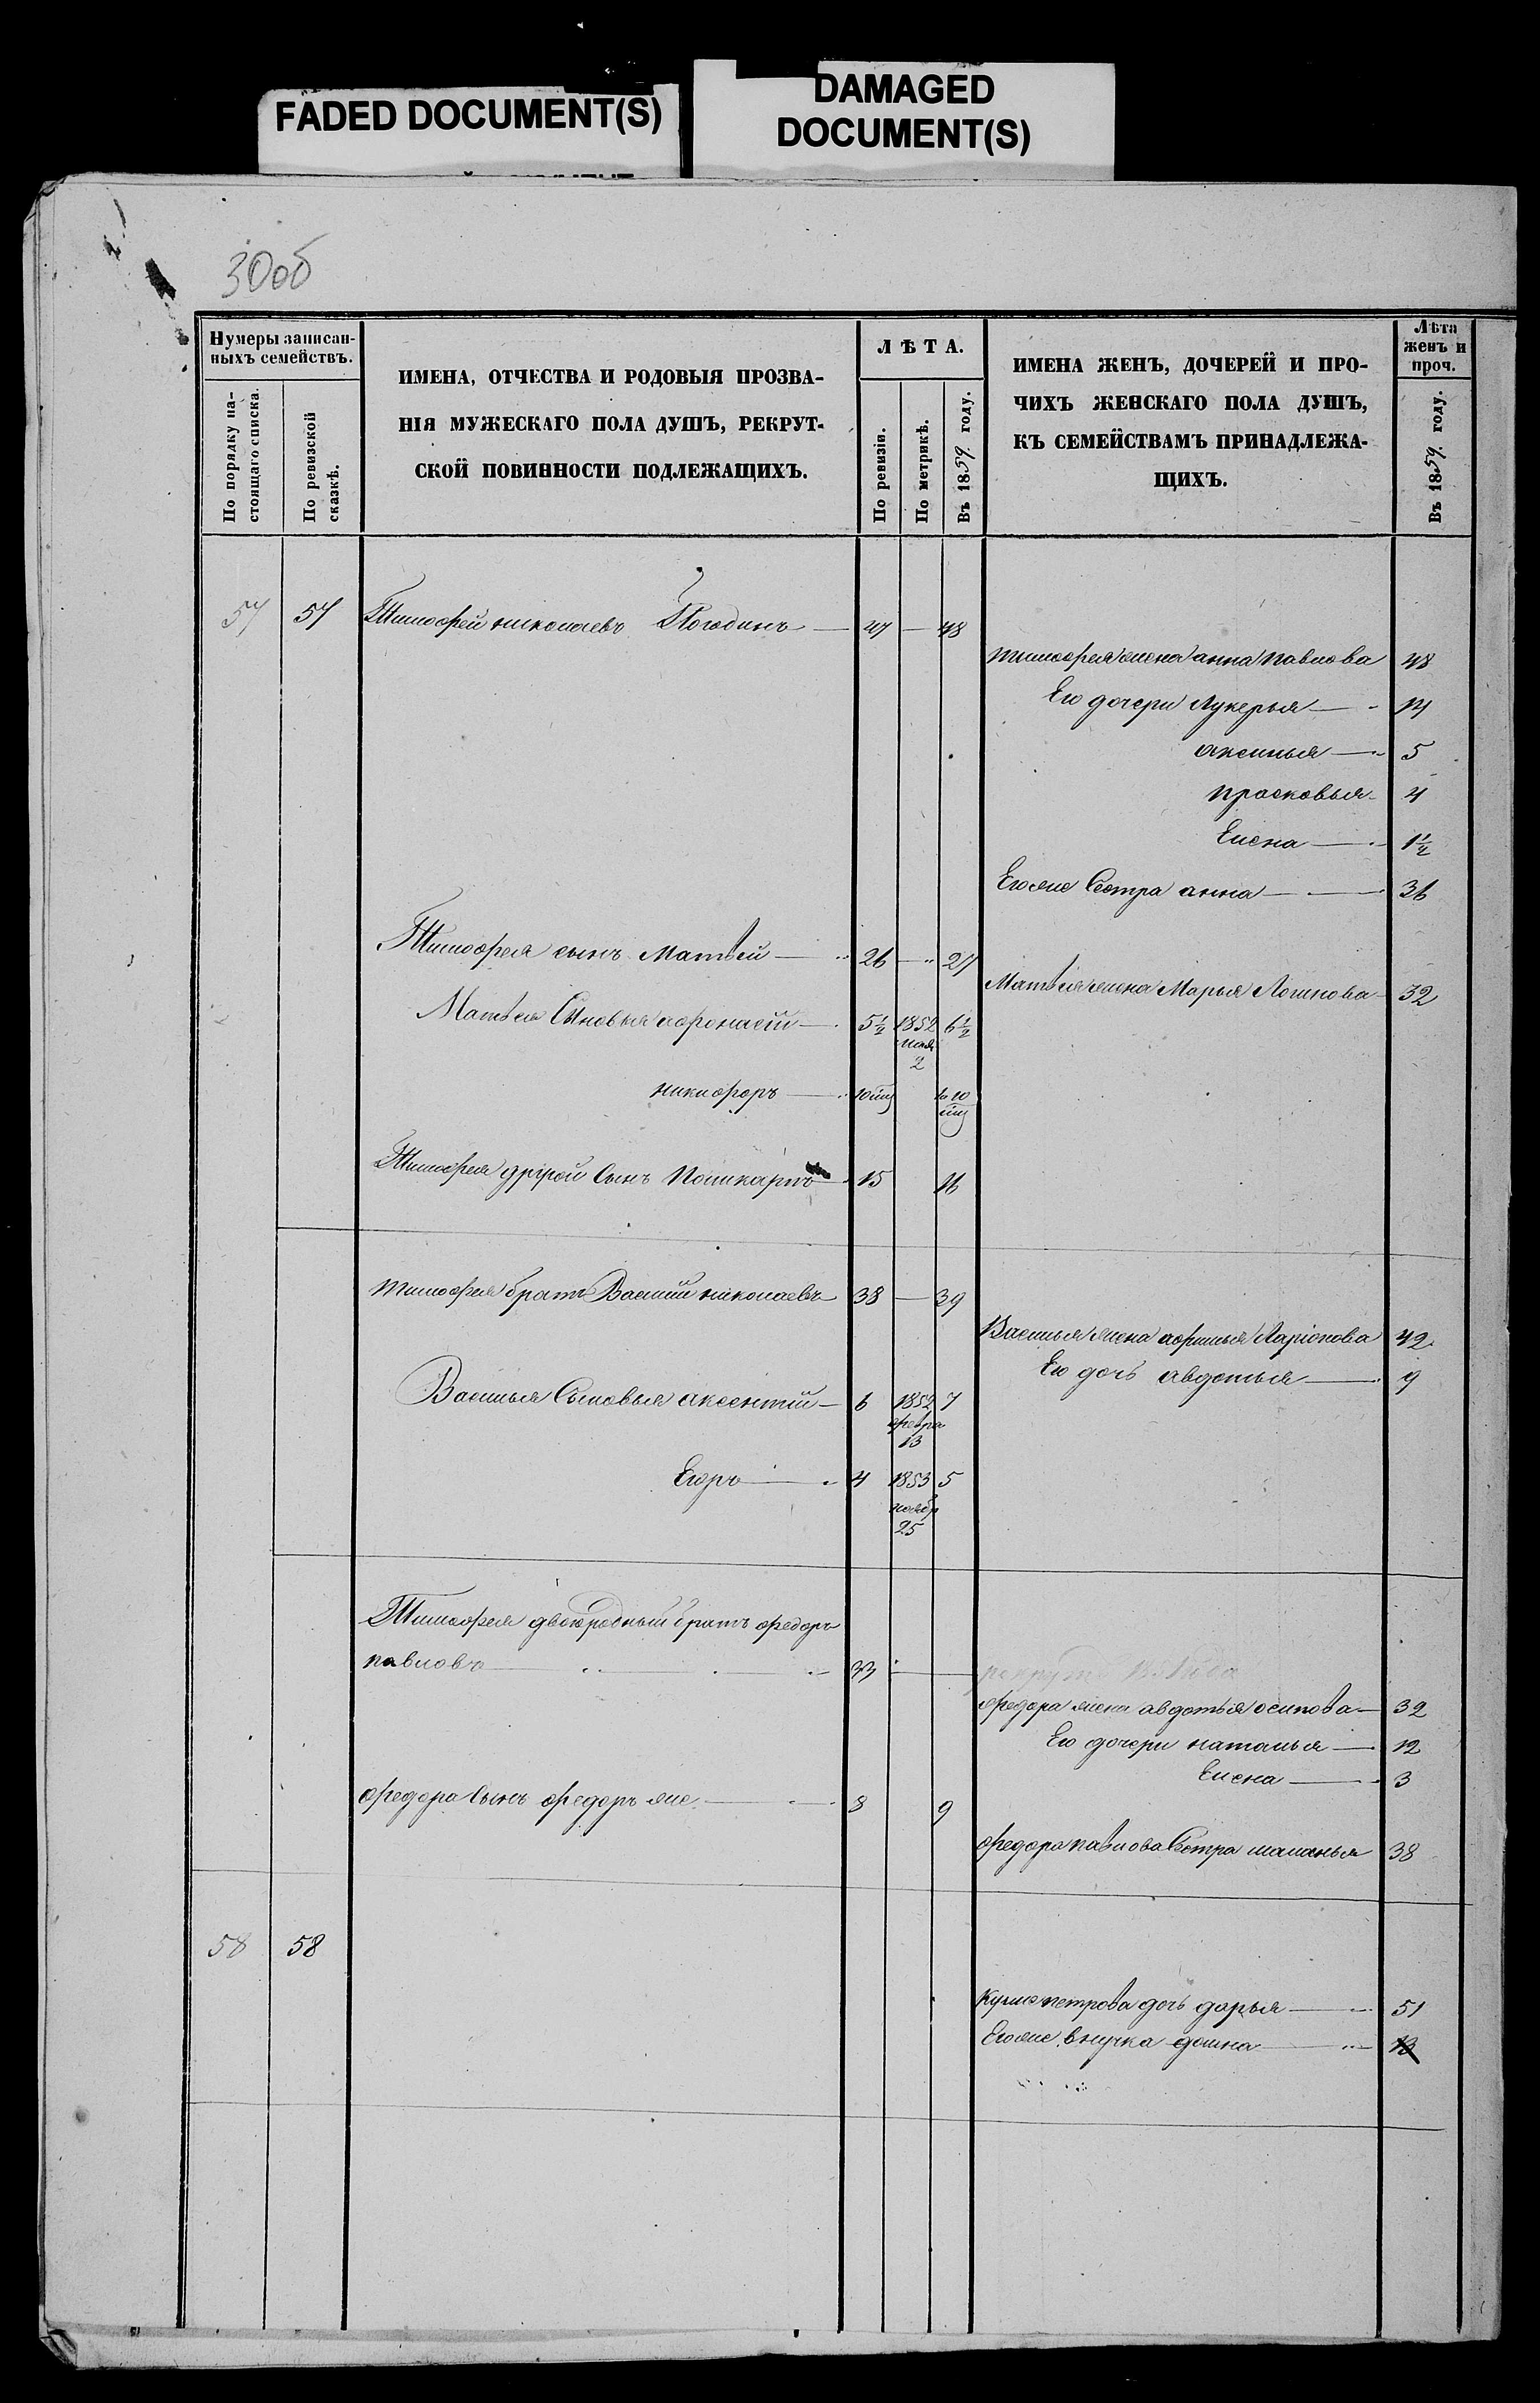 FADED DOCUMENT(S)
DAMAGED
DOCUMENT(S)
30об
Нумеры записан-
ныхъ семействъ.
По порядку на-
стоящаго списка.
По ревизской
сказкѣ.
ИМЕНА, ОТЧЕСТВА И РОДОВЫЯ ПРОЗВА-
НІЯ МУЖЕСКАГО ПОЛА ДУШЪ, РЕКРУТ-
СКОЙ ПОВИННОСТИ ПОДЛЕЖАЩИХЪ.
ЛѢТА.
По ревизіи.
По метрикѣ.
Въ 1859 году.
ИМЕНА ЖЕНЪ, ДОЧЕРЕЙ И ПРО-
ЧИХЪ ЖЕНСКАГО ПОЛА ДУШЪ,
КЪ СЕМЕЙСТВАМЪ ПРИНАДЛЕЖА-
ЩИХЪ.
Лѣта
женъ и
проч.
Въ 1859 году.
57 57 Тимофей николаевъ Погодинъ — 47 — 48
тимофея жена анна павлова 48
Его дочери Лукерья — 14
аксинья — 5
прасковья 4
Елена — 1½
Егоже Сестра анна — 36
Тимофея сынъ Матвей — 26 — 27
Матвея жена Марья Логинова 32
Матвея Сыновья афонасей — 5½ 1852 6½
2
никифоръ —
Тимофея другой Сынъ Поликарпъ 15 16
тимофея братъ Василий николаевъ 38 — 39
Василья жена афимья Ларіонова 42
Его дочь авдотья — 9
Василья Сыновья аксентий — 6 1852 7
февра
13
Егоръ — 4 1853 5
ноябр
25
Тимофея двоюродный братъ федоръ
павловъ — 33 —
федора жена авдотья осипова — 32
Его дочери наталья — 12
Елена — 3
федора Сынъ федоръ же — 8 9
федора павлова Сестра маланья 38
58 58
Кузмы петрова дочь дарья — 51
Егоже внучка домна — 13